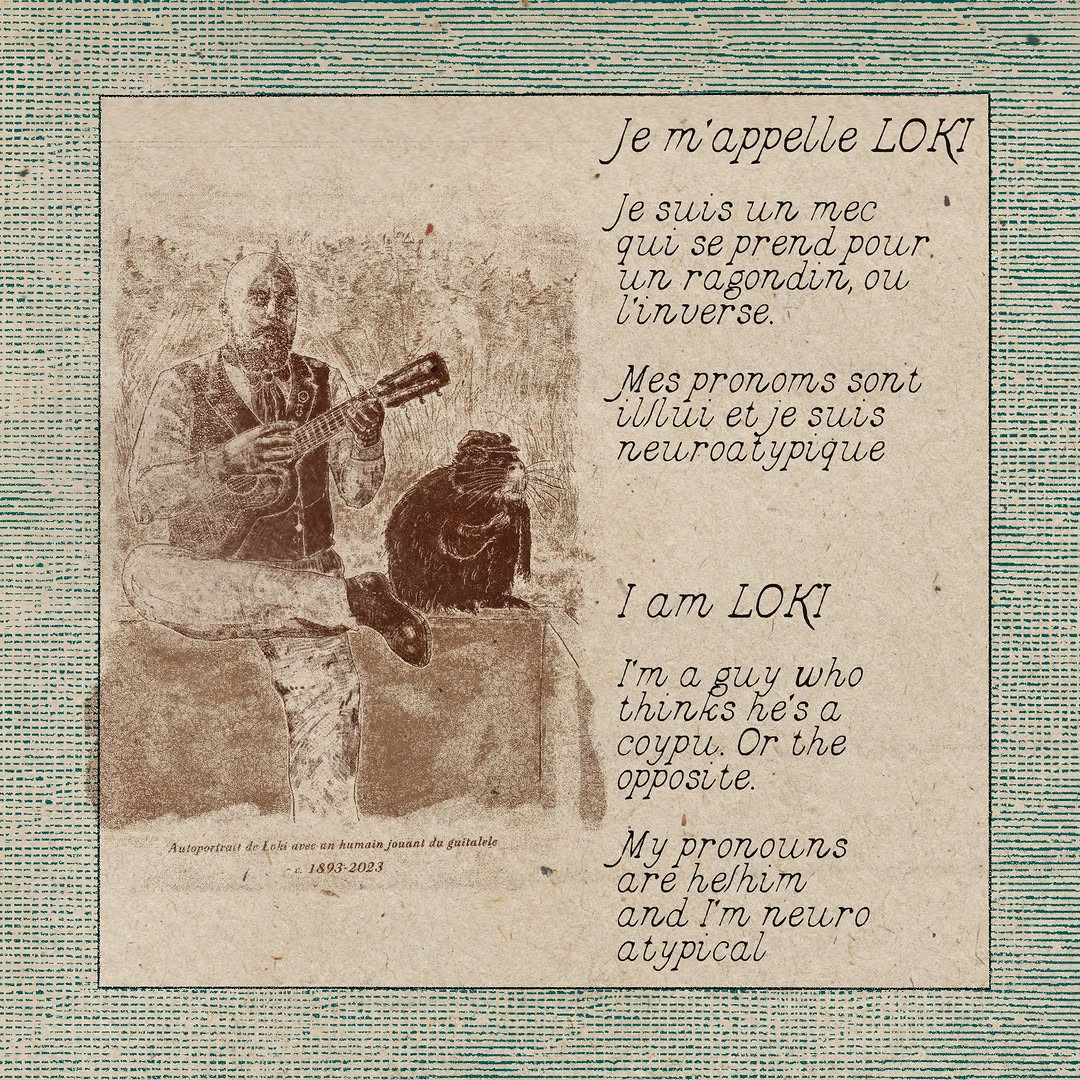 Je m'appelle LOKI
Je suis un mec
qui se prend pour
un ragondin, ou
l'inverse.
Mes pronoms sont
il/lui et je suis
neuroatypique
I am LOKI
I'm a guy who
thinks he's a
coypu. Or the
opposite.
My pronouns
are he/him
and I'm neuro
atypical
Autoportrait de Loki avec un humain jouant du guitalele
- c. 1893-2023